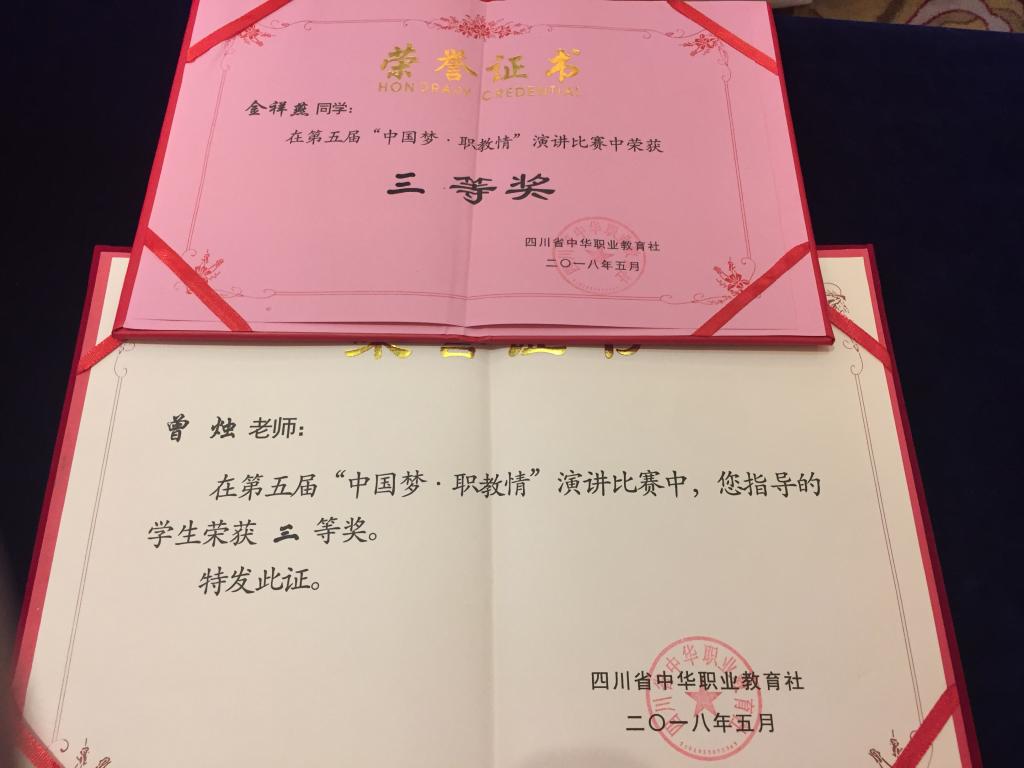 荣誉证书
HONORARY CREDENTIAL
金祥燕 同学：
在第五届“中国梦·职教情”演讲比赛中荣获
三等奖
四川省中华职业教育社
二〇一八年五月
荣誉证书
曾 烛 老师：
在第五届“中国梦·职教情”演讲比赛中，您指导的
学生荣获 三 等奖。
特发此证。
四川省中华职业教育社
二〇一八年五月